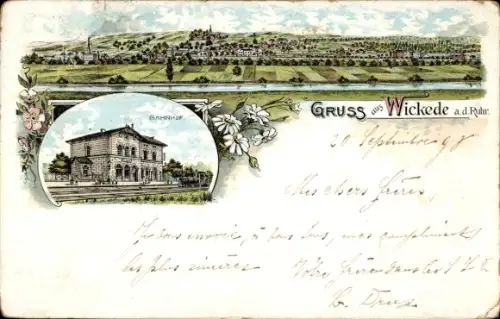 BAHNHOF
GRUSS aus Wickede a.d. Ruhr.
20 Septembre 98
Mes chers frères,
Je vous envoie, à tous deux, mes compliments
les plus sincères
Votre frère